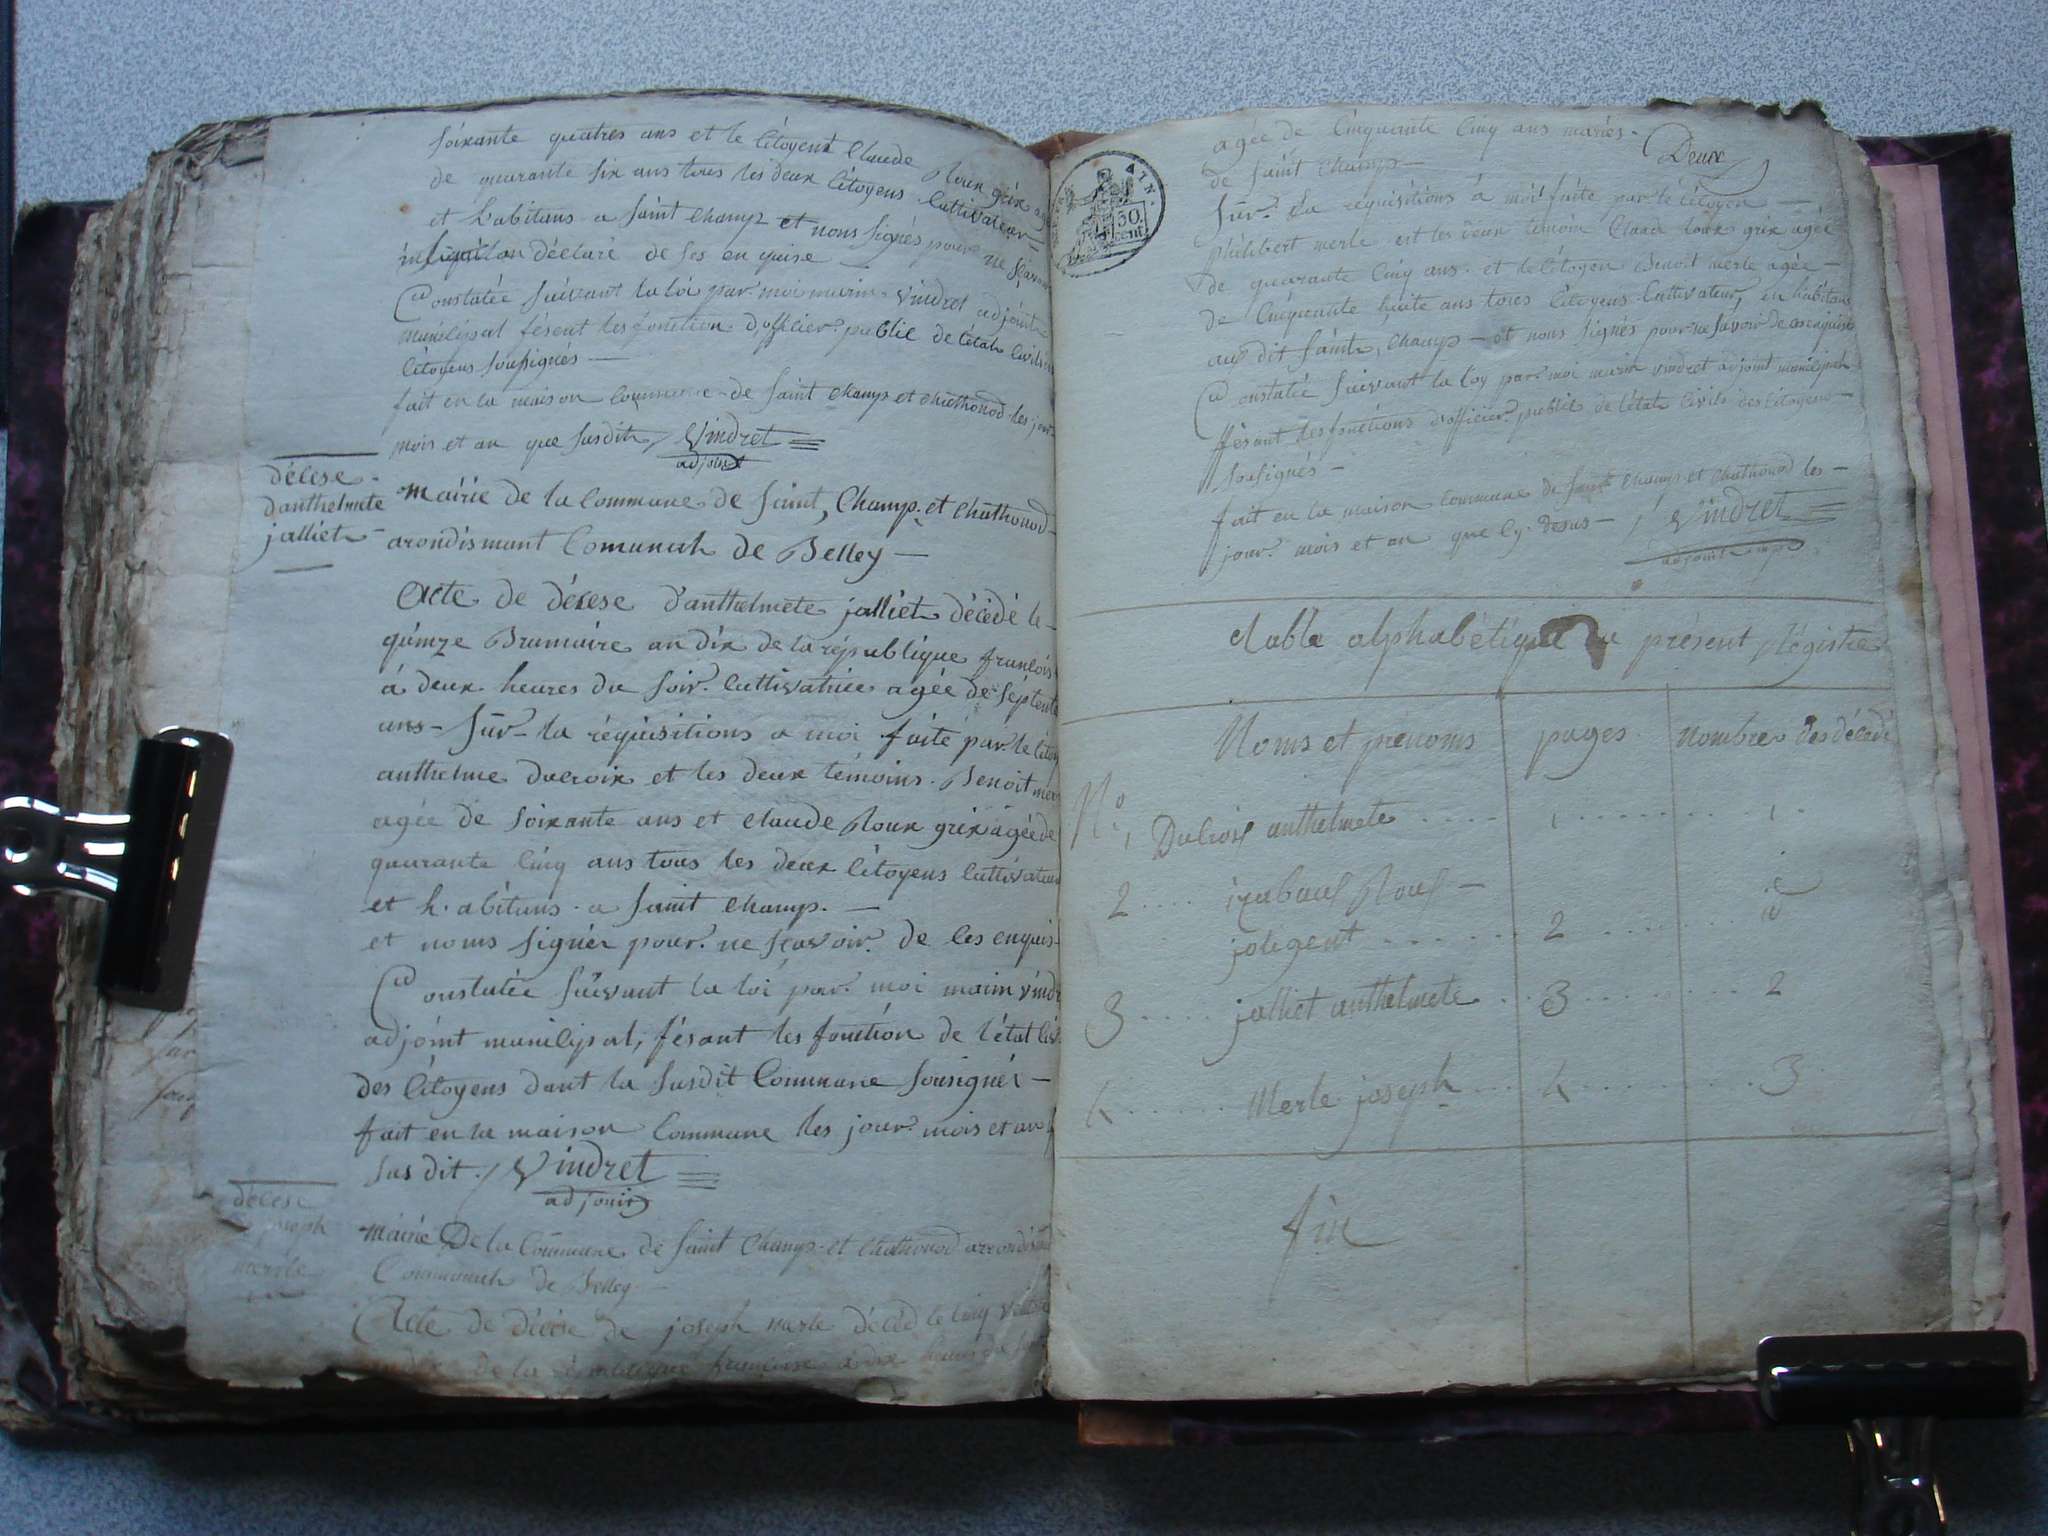 soixante quatres ans et le Citoyent Claude Roux grix
de quarante six ans tous les deux Citoyens Cultivateur
et habitans a saint Champ et nous signés pour ne scavoir
déclaré de ses en quise
Constatée suivant la loi par moi marin vindret adjoint
municipal fésent les fonction d'officier public de l'états civils
citoyens sousignés
fait en la maison commune de saint Champ et Chathonod les jour
mois et an que susdit / Vindret
adjoint
décese
danthelmete
jalliet
Mairie de la Commune de saint, Champ et Chathonod
arondismant Comunah de Belley
Acte de décese d'anthelmete jalliet décédé le
quinze Brumaire an dix de la république francois
à deux heures du soir Cultivatrice agée de septente
ans - Sur la réquisitions a moi faite par le Citoy
anthelme Ducroix et les deux témoins Benoit mer
agée de soixante ans et claude Roux grix agée de
quarante Cinq ans tous les deux Citoyens Cultivateur
et h. abitans a saint Champ.
et noms signér pour ne scavoir de ces enquis
Constatée suivant la loi par moi marin vindr
adjoint municipal, fésant les fonction de l'état civ
des Citoyens dant la susdit Commune sousignér
fait en la maison Commune les jour mois et an
sus dit / Vindret
adjoint
décese
joseph
merle
Mairie De la Commune de saint Champ et Chathonod arrondism
Communah de Belley
Acte de décese de joseph merle décéd le Cinq
an dix de la république francoise à dix heures du
agée de Cinquante Cinq ans mariés
de saint Champ
Deux
Sur la réquisitions à moi faite par le Citoyen
philibert merle est les deux témoin Claud Roux grix agée
de quarante Cinq ans et le Citoyen Benoit merle agée
de Cinquante huite ans tores Citoyens Cultivateur, en habitans
au dit sainte, Champ - et nous signés pour ne savoir de ces enquise
Constatée suivant la loy par moi marin vindret adjoint municipal
fésant les fonctions d'officier public de l'état Civils des Citoyens
sousignés
fait en la maison commune de saint Champ et Chathonod les
jour mois et an que Cy desus / Vindret
adjoint
30
cent
table alphabétique présent Régistre
Noms et prenoms pages nombres des décedé
No
1 Ducroix anthelmete 1 1
2 Roux
joligent 2
3 jalliet anthelmete 3 2
4 Merle joseph 4 3
fin